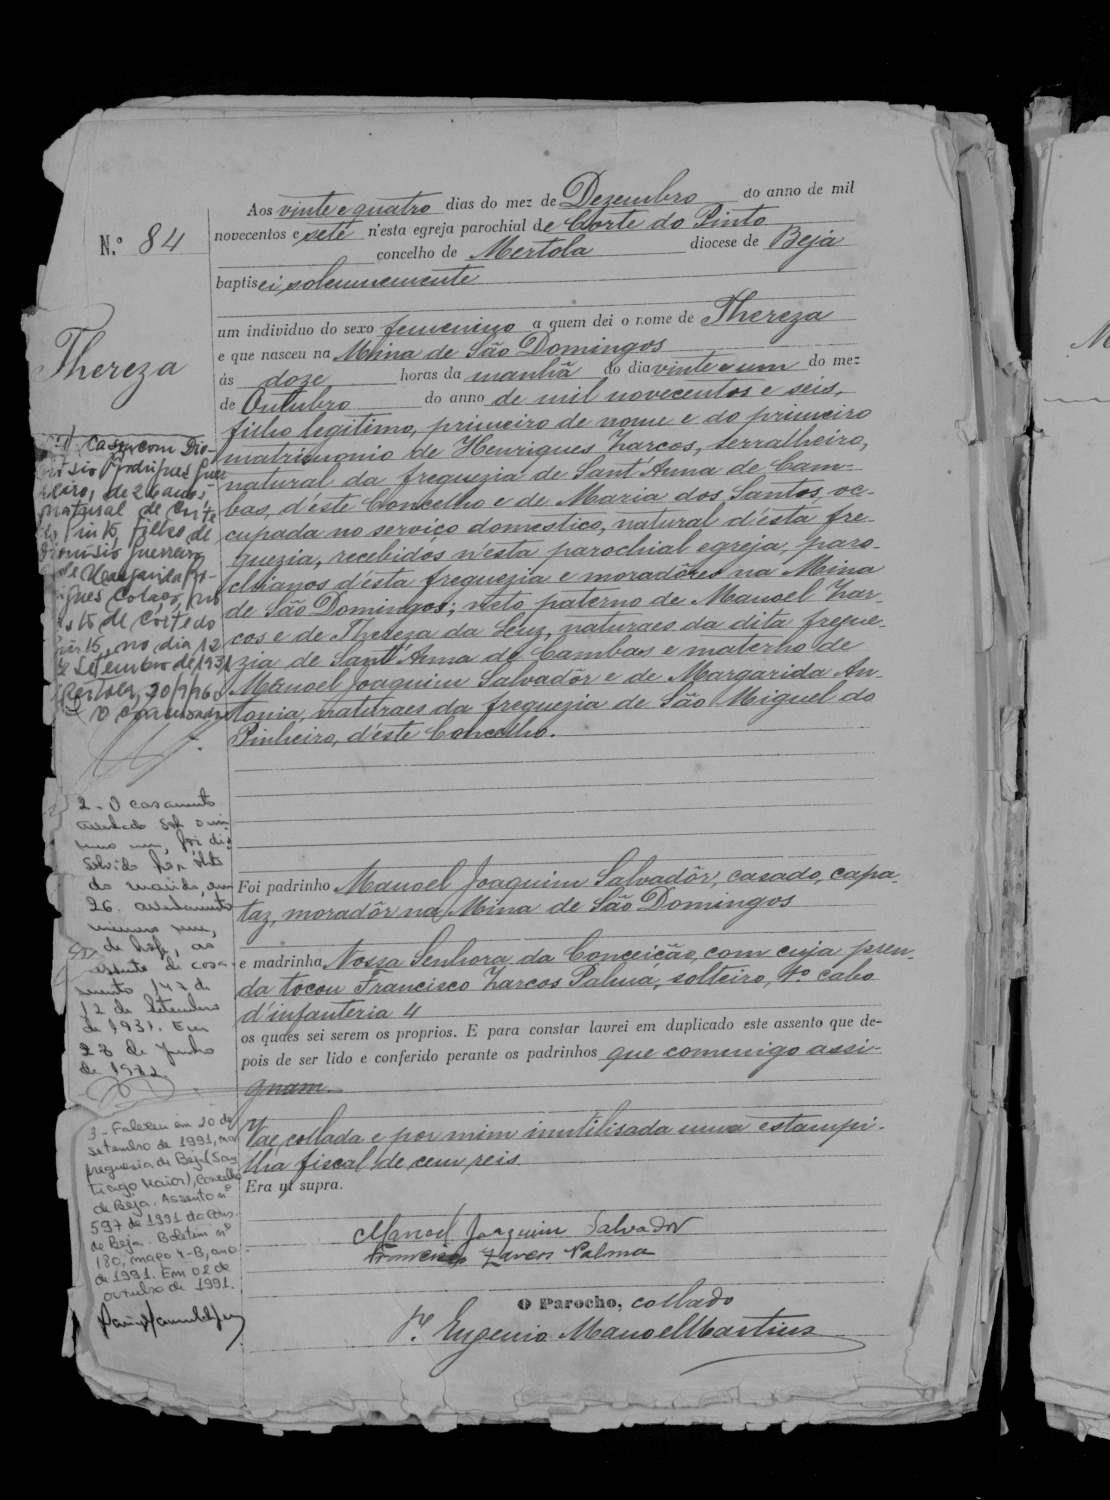 N.º 84
Thereza
Aos vinte e quatro dias do mez de Dezembro do anno de mil
novecentos e sete n'esta egreja parochial de Corte do Pinto
concelho de Mertola diocese de Beja
baptisei solemnemente
um individuo do sexo femenino a quem dei o nome de Thereza
e que nasceu na Mina de São Domingos
ás doze horas da manhã do dia vinte e um do mez
de Outubro do anno de mil novecentos e seis,
filho legitimo, primeiro de nome e do primeiro
matrimonio de Henriques Zarcos, serralheiro,
natural da freguezia de Sant'Anna de Cam-
bas, d'éste Concelho e de Maria dos Santos, oc-
cupada no serviço domestico, natural d'ésta fre-
guezia, recebidos n'ésta parochial egreja, paro-
chianos d'ésta freguezia e moradôres na Mina
de São Domingos; neto paterno de Manoel Zar-
cos e de Thereza da Luz, naturaes da dita fregue-
zia de Sant'Anna de Cambas e materno de
Manoel Joaquim Salvadôr e de Margarida An-
tonia, naturaes da freguezia de São Miguel do
Pinheiro, d'éste Concelho.
Foi padrinho Manoel Joaquim Salvadôr, casado, capa-
taz, moradôr na Mina de São Domingos
e madrinha Nossa Senhora da Conceição, com cuja pren-
da tocou Francisco Zarcos Palma, solteiro, 1.º cabo
d'infanteria 4
os quaes sei serem os proprios. E para constar lavrei em duplicado este assento que de-
pois de ser lido e conferido perante os padrinhos que comenigo assi-
gnam.
Vae collada e por mim inutilisada uma estampi-
lha fiscal de cem reis.
Era ut supra.
Manoel Joaquim Salvador
Francisco Zarcos Palma
O Parocho, collado
P.e Eugenio Manoel Martins
Casou com Dio-
nisio Rodrigues Guer-
reiro, de 26 anos,
natural de Corte
do Pinto, filho de
Dionisio Guerreiro
e de
Colaço,
de Corte do
Pinto, no dia 12
de Setembro de 1931
Mertola, 30/7/960
O Conservador
2 - O casamento
averbado sob o nú-
mero um, foi dis-
solvido por óbito
do marido,
26. averbamento
número um,
de hoje, ao
assento de casa-
mento 147 de
12 de Setembro
de 1931. Em
28 de Junho
de 1972.
3 - Faleceu em 20 de
setembro de 1991, na
freguesia de Beja (San-
tiago Maior), Concelho
de Beja. Assento nº
597 de 1991 da Cons.
de Beja. Boletim nº
180, maço 4-B, ano
de 1991. Em 02 de
outubro de 1991.